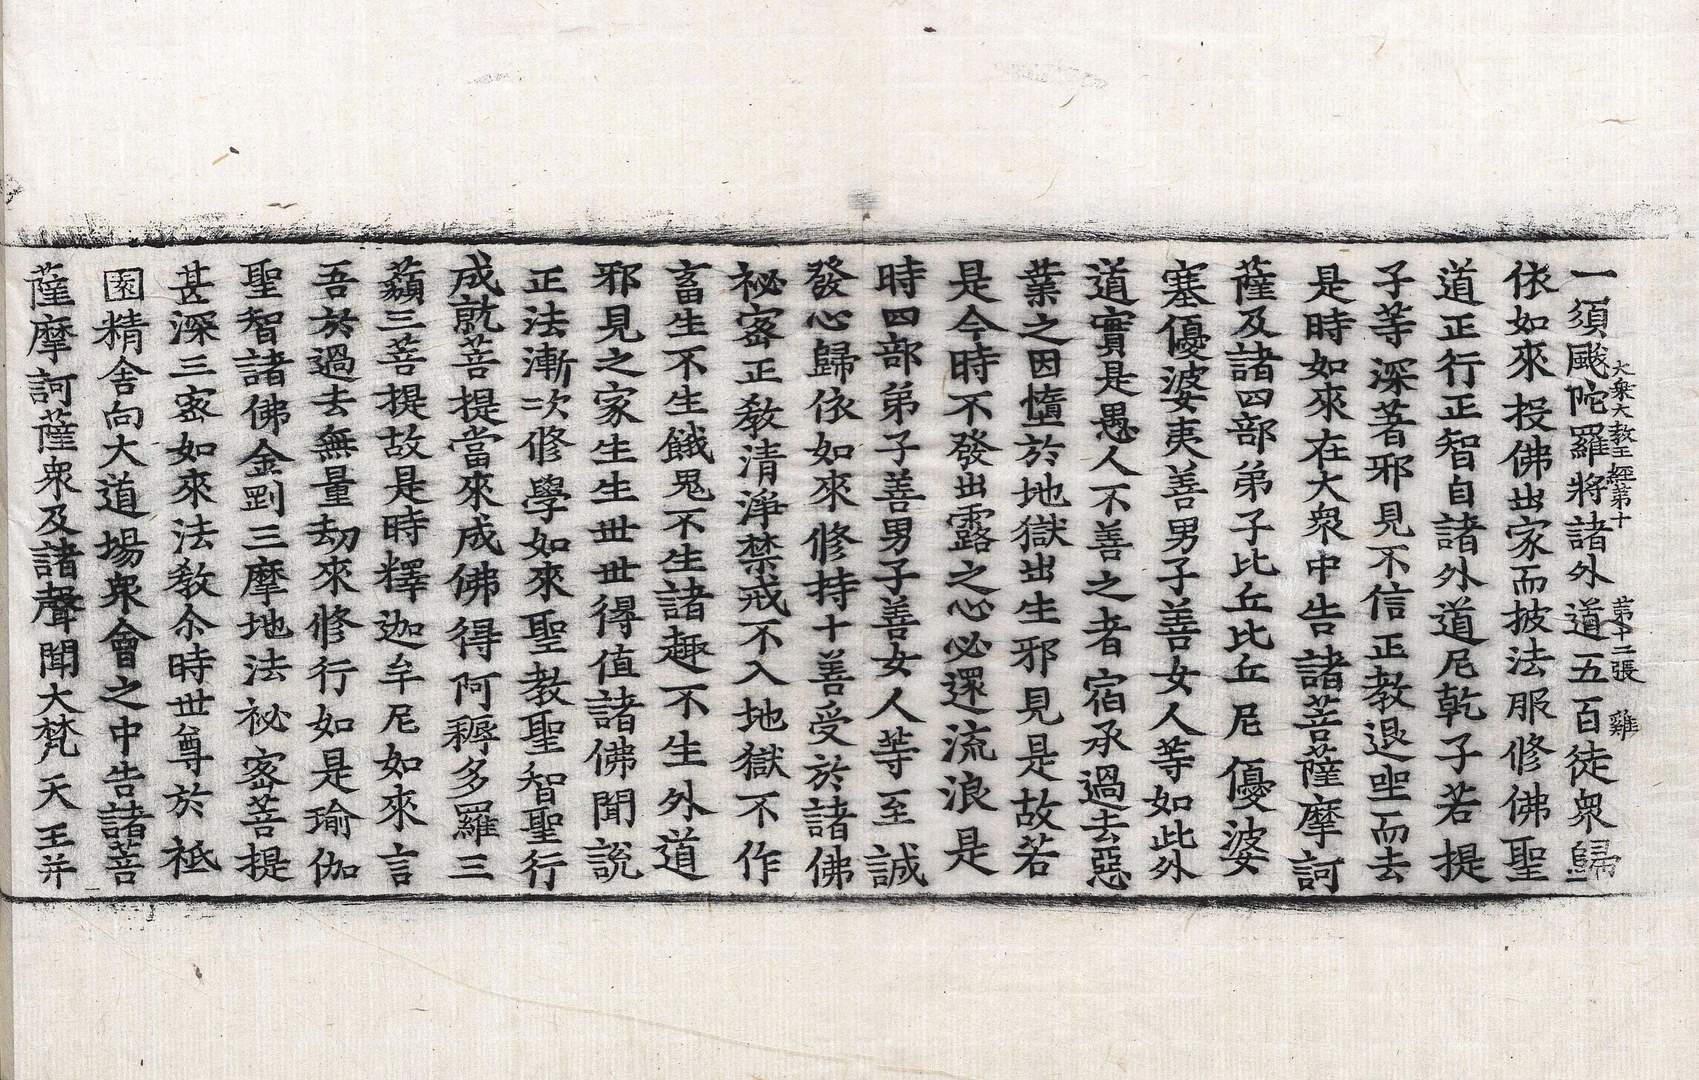 大教王經第十　第十二張　雞
一須颰陀羅將諸外道五百徒衆歸
依如來投佛出家而披法服修佛聖
道正行正智自諸外道尼乾子若提
子等深著邪見不信正教退坐而去
是時如來在大衆中告諸菩薩摩訶
薩及諸四部弟子比丘比丘尼優婆
塞優婆夷善男子善女人等如此外
道實是愚人不善之者宿承過去惡
業之因墮於地獄出生邪見是故若
是今時不發出露之心必還流浪是
時四部弟子善男子善女人等至誠
發心歸依如來修持十善受於諸佛
祕密正教清淨禁戒不入地獄不作
畜生不生餓鬼不生諸趣不生外道
邪見之家生生世世得值諸佛聞說
正法漸次修學如來聖教聖智聖行
成就菩提當來成佛得阿耨多羅三
藐三菩提故是時釋迦牟尼如來言
吾於過去無量劫來修行如是瑜伽
聖智諸佛金剛三摩地法祕密菩提
甚深三密如來法教尒時世尊於祇
園精舍向大道場衆會之中告諸菩
薩摩訶薩衆及諸聲聞大梵天王并